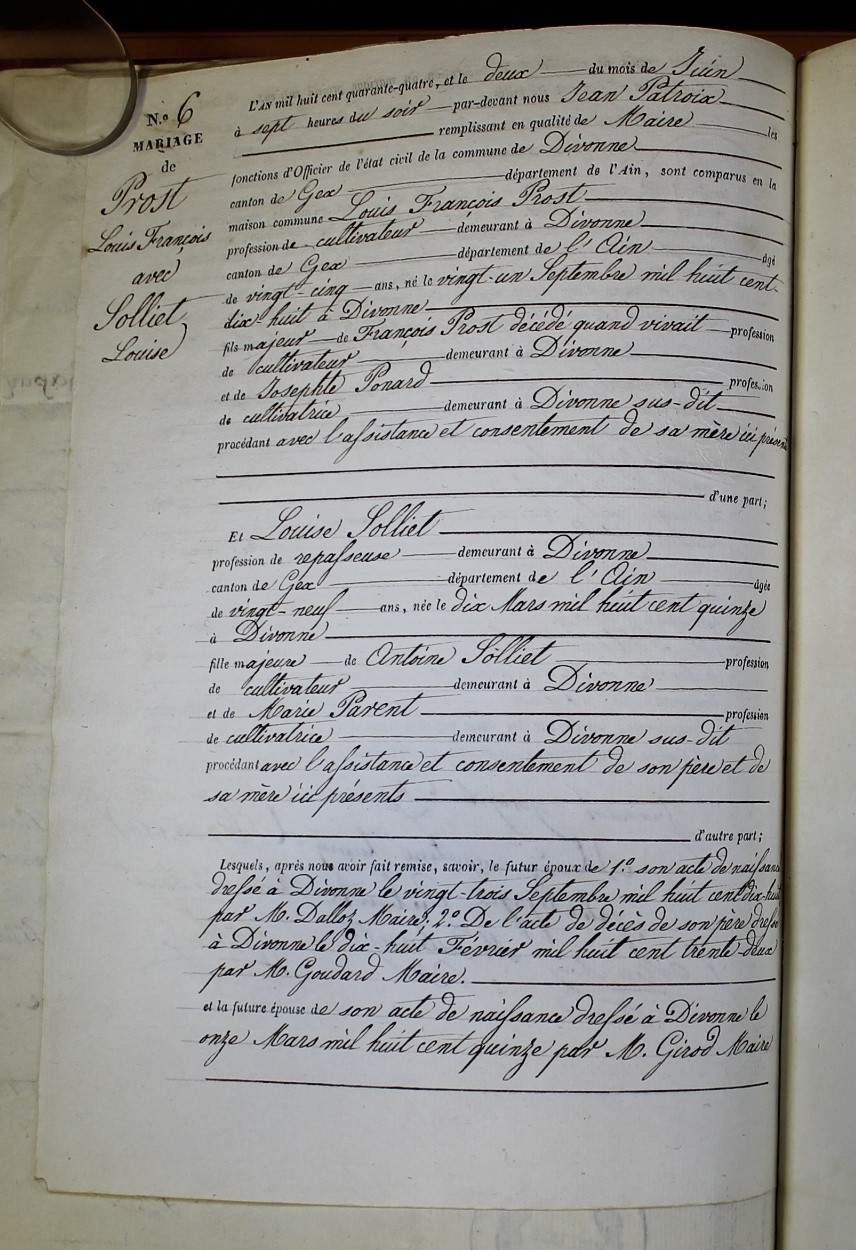 N.o 6
MARIAGE
de
Prost
Louis François
avec
Solliet
Louise
L'AN mil huit cent quarante-quatre, et le deux du mois de Juin
à sept heures du soir par-devant nous Jean Patroix
remplissant en qualité de Maire les
fonctions d'Officier de l'état civil de la commune de Divonne
canton de Gex département de l'Ain, sont comparus en la
maison commune Louis François Prost
profession de cultivateur demeurant à Divonne
canton de Gex département de l'Ain âgé
de vingt-cinq ans, né le vingt-un Septembre mil huit cent-
dix-huit à Divonne
fils majeur de François Prost décédé quand vivait profession
de cultivateur demeurant à Divonne
et de Josephte Ponard profession
de cultivatrice demeurant à Divonne sus-dit
procédant avec l'assistance et consentement de sa mère ici présente
d'une part;
Et Louise Solliet
profession de repasseuse demeurant à Divonne
canton de Gex département de l'Ain âgée
de vingt-neuf ans, née le dix Mars mil huit cent quinze
à Divonne
fille majeure de Antoine Solliet profession
de cultivateur demeurant à Divonne
et de Marie Parent profession
de cultivatrice demeurant à Divonne sus-dit
procédant avec l'assistance et consentement de son père et de
sa mère ici présents
d'autre part;
Lesquels, après nous avoir fait remise, savoir, le futur époux de 1.o son acte de naissance
dressé à Divonne le vingt-trois Septembre mil huit cent dix-huit
par M. Dalloz Maire; 2.o De l'acte de décès de son père dressé
à Divonne le dix-huit Février mil huit cent trente-deux
par M. Goudard Maire.
et la future épouse de son acte de naissance dressé à Divonne le
onze Mars mil huit cent quinze par M. Girod Maire